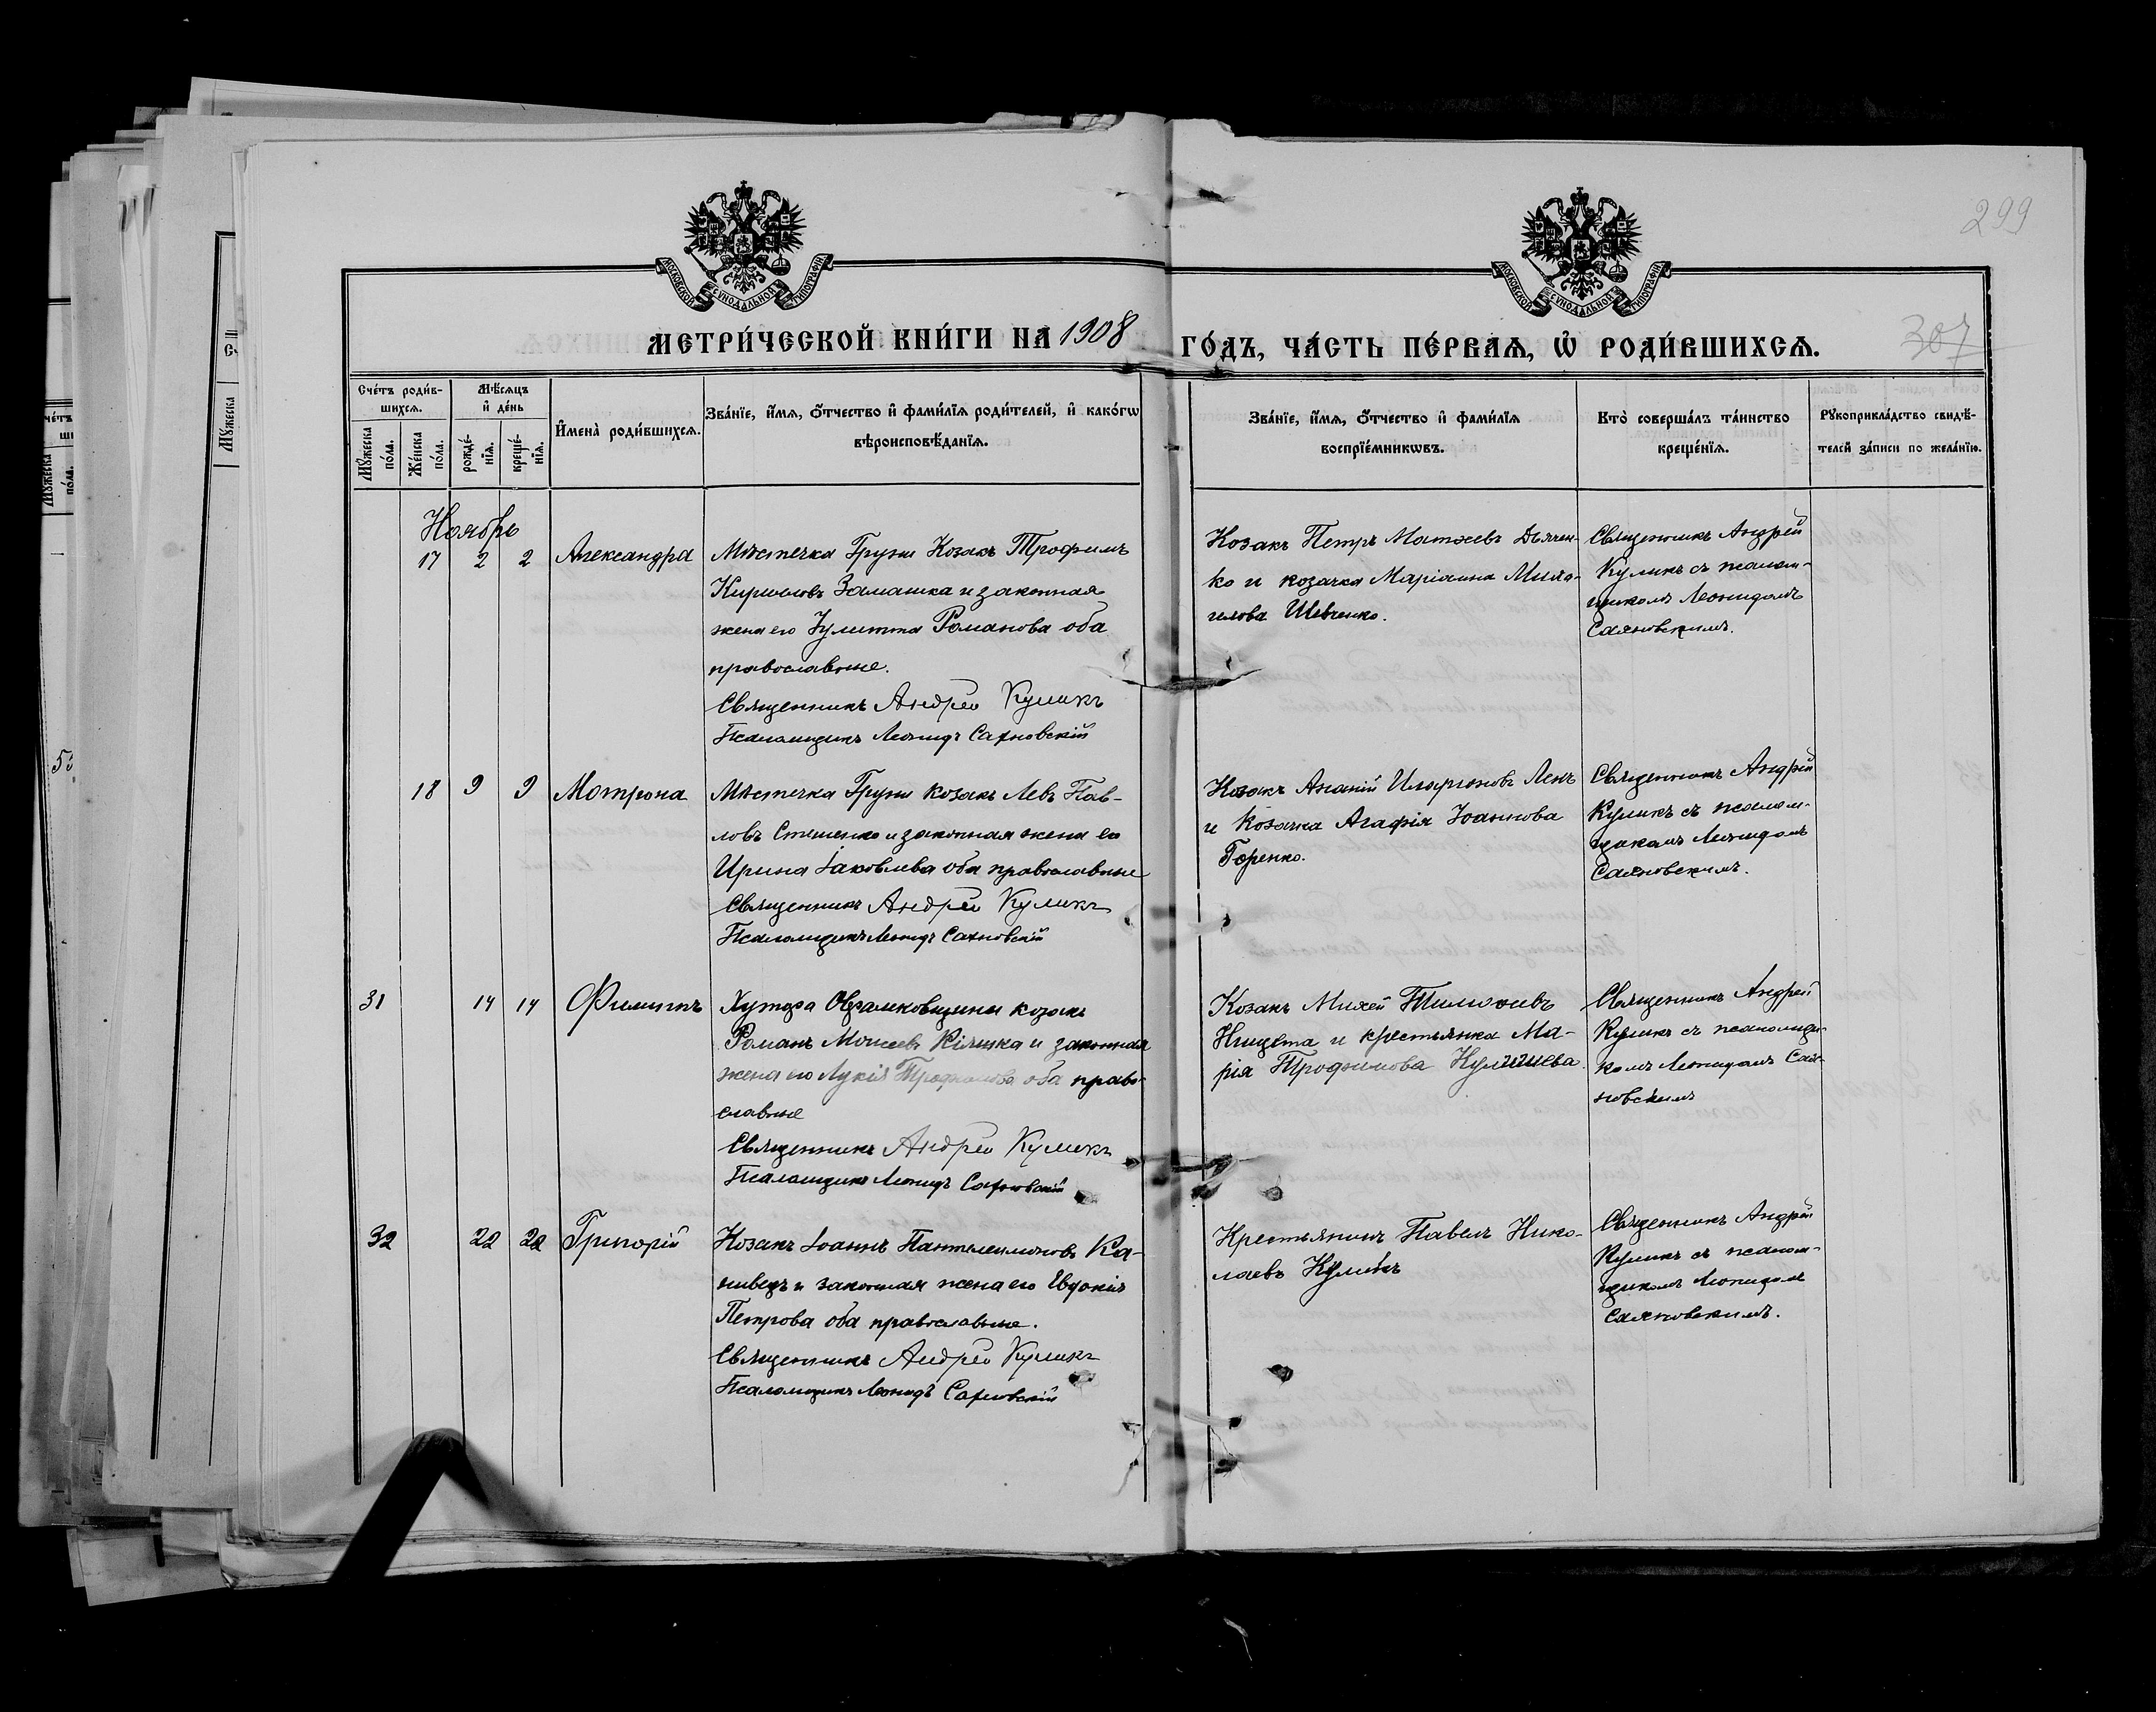 299
МОСКОВСКОЙ СѴНОДАЛЬНОЙ ТИПОГРАФІИ
МОСКОВСКОЙ СѴНОДАЛЬНОЙ ТИПОГРАФІИ
МЕТРИ́ЧЕСКОЙ КНИ́ГИ НА 1908 ГО́ДЪ, ЧА́СТЬ ПЕ́РВАЯ, Ѡ҆ РОДИ́ВШИХСЯ.
307
Сче́тъ роди́в-
шихся.
Мꙋ́жеска по́ла.
Же́нска по́ла.
Мѣ́сяцъ и҆ де́нь
рожде́нїя.
креще́нїя.
И҆мена̀ роди́вшихся.
Зва́нїе, и҆́мя, ѻ҆́тчество и҆ фами́лїя роди́телей, и҆ како́гѡ
вѣроисповѣ́данїя.
Зва́нїе, и҆́мя, ѻ҆́тчество и҆ фами́лїя
воспрїе́мникѡвъ.
Кто̀ соверша́лъ та́инство
креще́нїя.
Рꙋкоприкла́дство свидѣ́-
телей за́писи по жела́нїю.
Ноябрь
17 2 2 Александра
Мѣстечка Груни Козакъ Трофимъ
Кирилловъ Замашка и законная
жена его Іулитта Романова оба
православные.
Священникъ Андрей Куликъ
Псаломщикъ Леонидъ Сахновскій
Козакъ Петръ Матѳеевъ Дьячен-
ко и козачка Маріанна Миха-
илова Шевченко.
Священникъ Андрей
Куликъ съ псалом-
щикомъ Леонидомъ
Сахновскимъ.
18 9 9 Матрона
Мѣстечка Груни козакъ Левъ Пав-
ловъ Стешенко и законная жена его
Ирина Іаковлева оба православные
Священникъ Андрей Куликъ
Псаломщикъ Леонидъ Сахновскій
Козакъ Ананій Иларіоновъ Ленъ
и Козачка Агафія Іоаннова
Горенко.
Священникъ Андрей
Куликъ съ псалом-
щикомъ Леонидомъ
Сахновскимъ.
31 14 14 Филиппъ
Хутора козакъ
Романъ Моисеевъ Кіяшка и законная
жена его Лукія Трофимова оба право-
славные
Священникъ Андрей Куликъ
Псаломщикъ Леонидъ Сахновскій
Козакъ Михей Тимоѳеевъ
Нищета и крестьянка Ма-
рія Трофимова
Священникъ Андрей
Куликъ съ псаломщи-
комъ Леонидомъ Сах-
новскимъ
32 22 22 Григорій
Козакъ Іоаннъ Пантелеимоновъ Ка-
нивецъ и законная жена его Евдокія
Петрова оба православные.
Священникъ Андрей Куликъ
Псаломщикъ Леонидъ Сахновскій
Крестьянинъ Павелъ Нико-
лаевъ Куликъ
Священникъ Андрей
Куликъ съ псалом-
щикомъ Леонидомъ
Сахновскимъ.